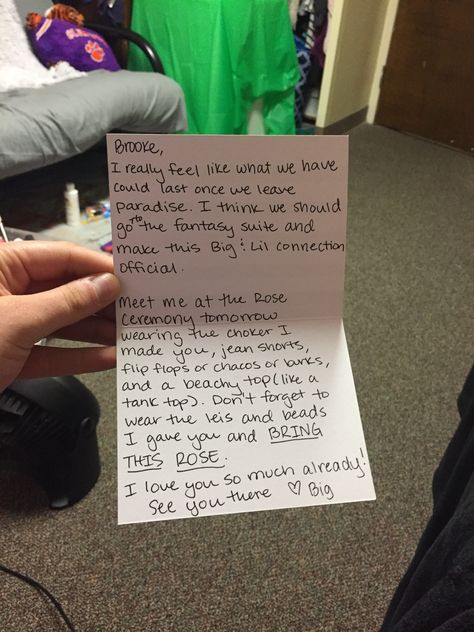 Brooke,
I really feel like what we have
could last once we leave
paradise. I think we should
go to the fantasy suite and
make this Big & Lil connection
official.
Meet me at the Rose
Ceremony tomorrow
wearing the choker I
made you, jean shorts,
flip flops or chacos or birks,
and a beachy top (like a
tank top). Don't forget to
wear the leis and beads
I gave you and BRING
THIS ROSE.
I love you so much already!
See you there ♡ Big